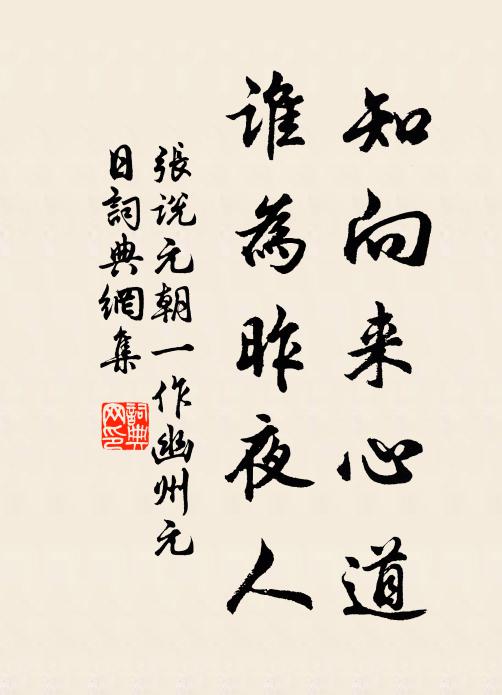 知向来心道
谁為昨夜人
張说元朝一作幽州元
日詞典網集
詞典
网印